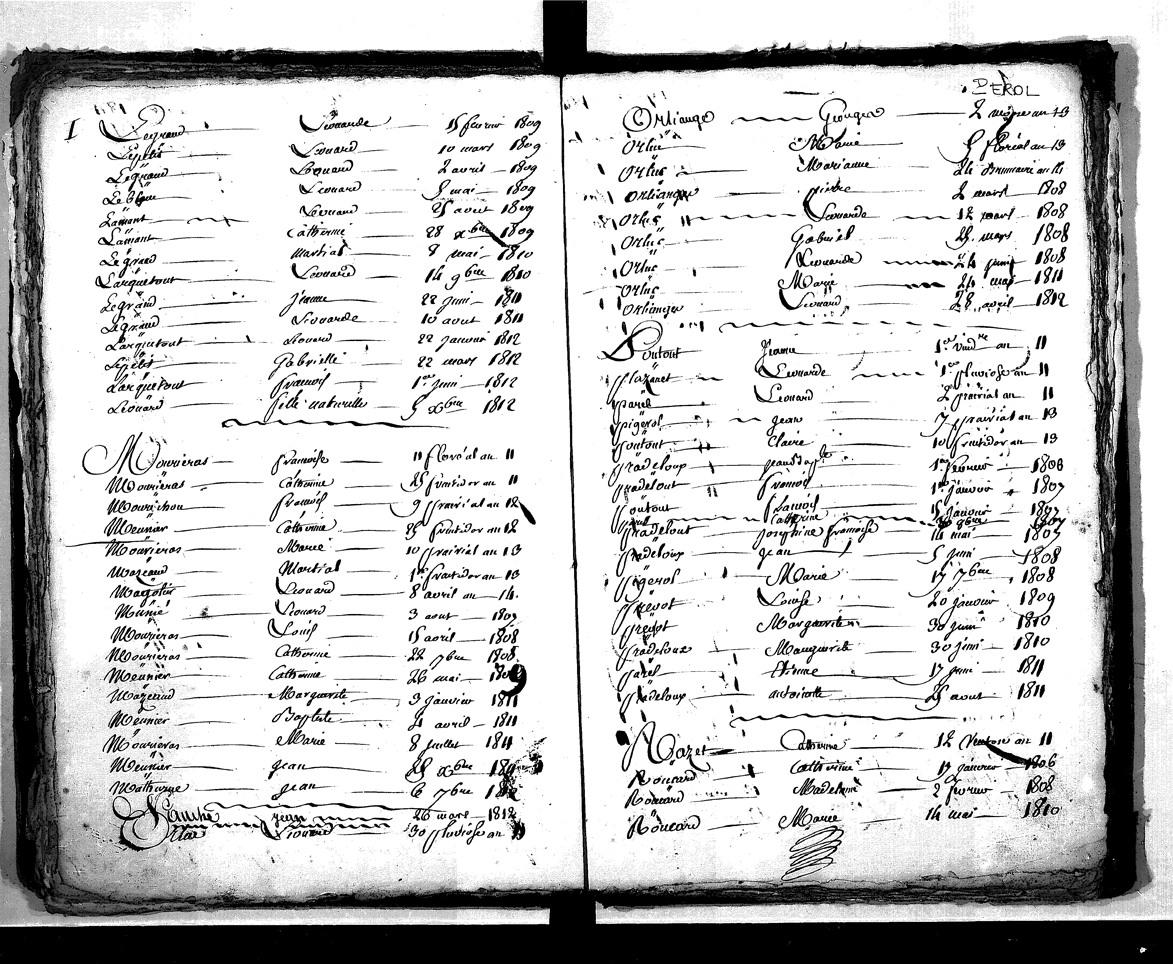 I
Legrand Léonarde 15 fevrier 1809
Lepetit Léonard 10 mars 1809
Legrand Léonard 2 avril 1809
Léonard 5 mai 1809
Lamont Léonard 25 aout 1809
Lamont Catherine 28 xbre 1809
Legrand Martial 8 mai 1810
Larquetout Léonard 14 9bre 1810
Legrand jeanne 22 juin 1811
Legrand Léonarde 10 aout 1811
Larquetout Léonard 22 janvier 1812
Lepetit Gabrielle 22 mars 1812
Larquetout françois 1er juin 1812
Léonard fille naturelle 5 xbre 1812
Mourieras françoise 11 floréal an 11
Mourieras Catherine 25 fruitidor an 11
Mourichou françois 9 prairial an 12
Meunier Catherine 25 fruitidor an 12
Mourieras Marie 10 prairial an 13
Mazeaud Martial 1er fruitidor an 13
Léonard 8 avril an 14
Munié Léonard 3 aout 1807
Mourieras Louis 15 avril 1808
Mourieras Catherine 22 7bre 1808
Meunier Catherine 26 mai 1809
Mazeaud Marguerite 3 janvier 1811
Meunier Baptiste 4 avril 1811
Mourieras Marie 8 juillet 1811
Meunier jean 25 xbre
jean 6 7bre 1812
jean 26 mars 1812
Léonard 30 pluviose an
PEROL
Orliange Georges 2 an 13
Orluc Marie 5 floréal an 13
Orluc Marianne 24 brumaire an 14
Orliange pierre 2 mars 1808
Orluc Léonarde 12 mars 1808
Orluc Gabriel 25 mars 1808
Orluc Léonarde 24 juin 1808
Orluc Marie 24 mai 1811
Orliange Léonard 28 avril 1812
Pontout jeanne 1er vendre an 11
plazanet Léonarde 1er pluviose an 11
parel Léonard 2 prairial an 11
pigerol jean 7 prairial an 13
pontout Claire 10 fruitidor an 13
pradeloup 1er fevrier 1806
pradelout françois 1er janvier 1807
pontout françois 15 janvier 1807
Catherine 9bre 1807
pradelout josephine françoise 14 mai 1807
pradeloup jean 5 juin 1808
pigerol Marie 17 7bre 1808
prevot Louise 20 janvier 1809
prevot Marguerite 30 juin 1810
pradeloux Marguerite 30 juin 1810
parel étienne 17 juin 1811
pradeloup antoinette 25 aout 1811
Razet Catherine 12 Ventose an 11
Roucard Catherine 17 janvier 1806
Roucard Madeleine 2 fevrier 1808
Roucard Marie 14 mai 1810